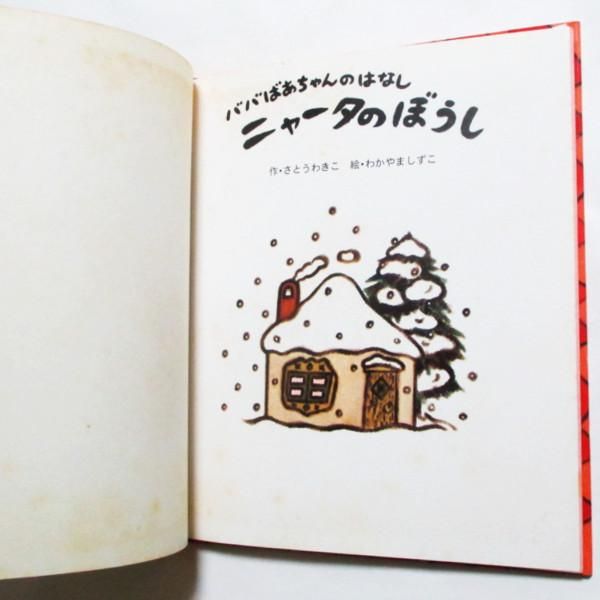 ババばあちゃんのはなし
ニャータのぼうし
作・さとうわきこ　絵・わかやましずこ